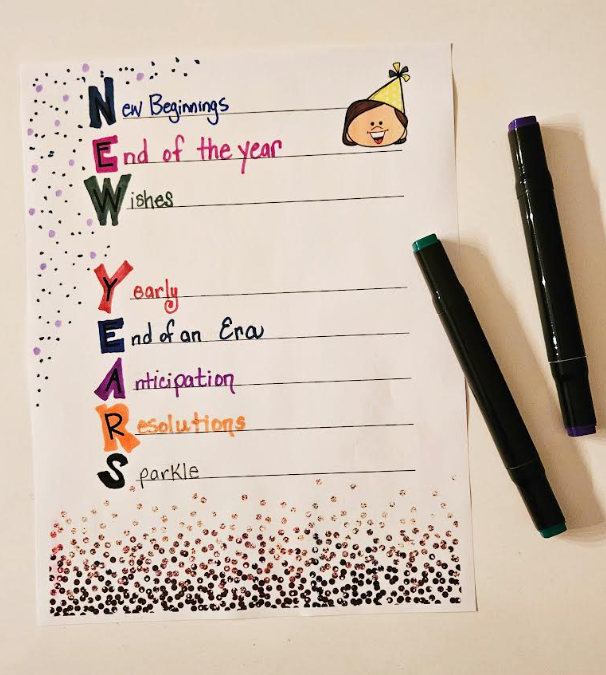 New Beginnings
End of the year
Wishes
Yearly
End of an Era
Anticipation
Resolutions
Sparkle